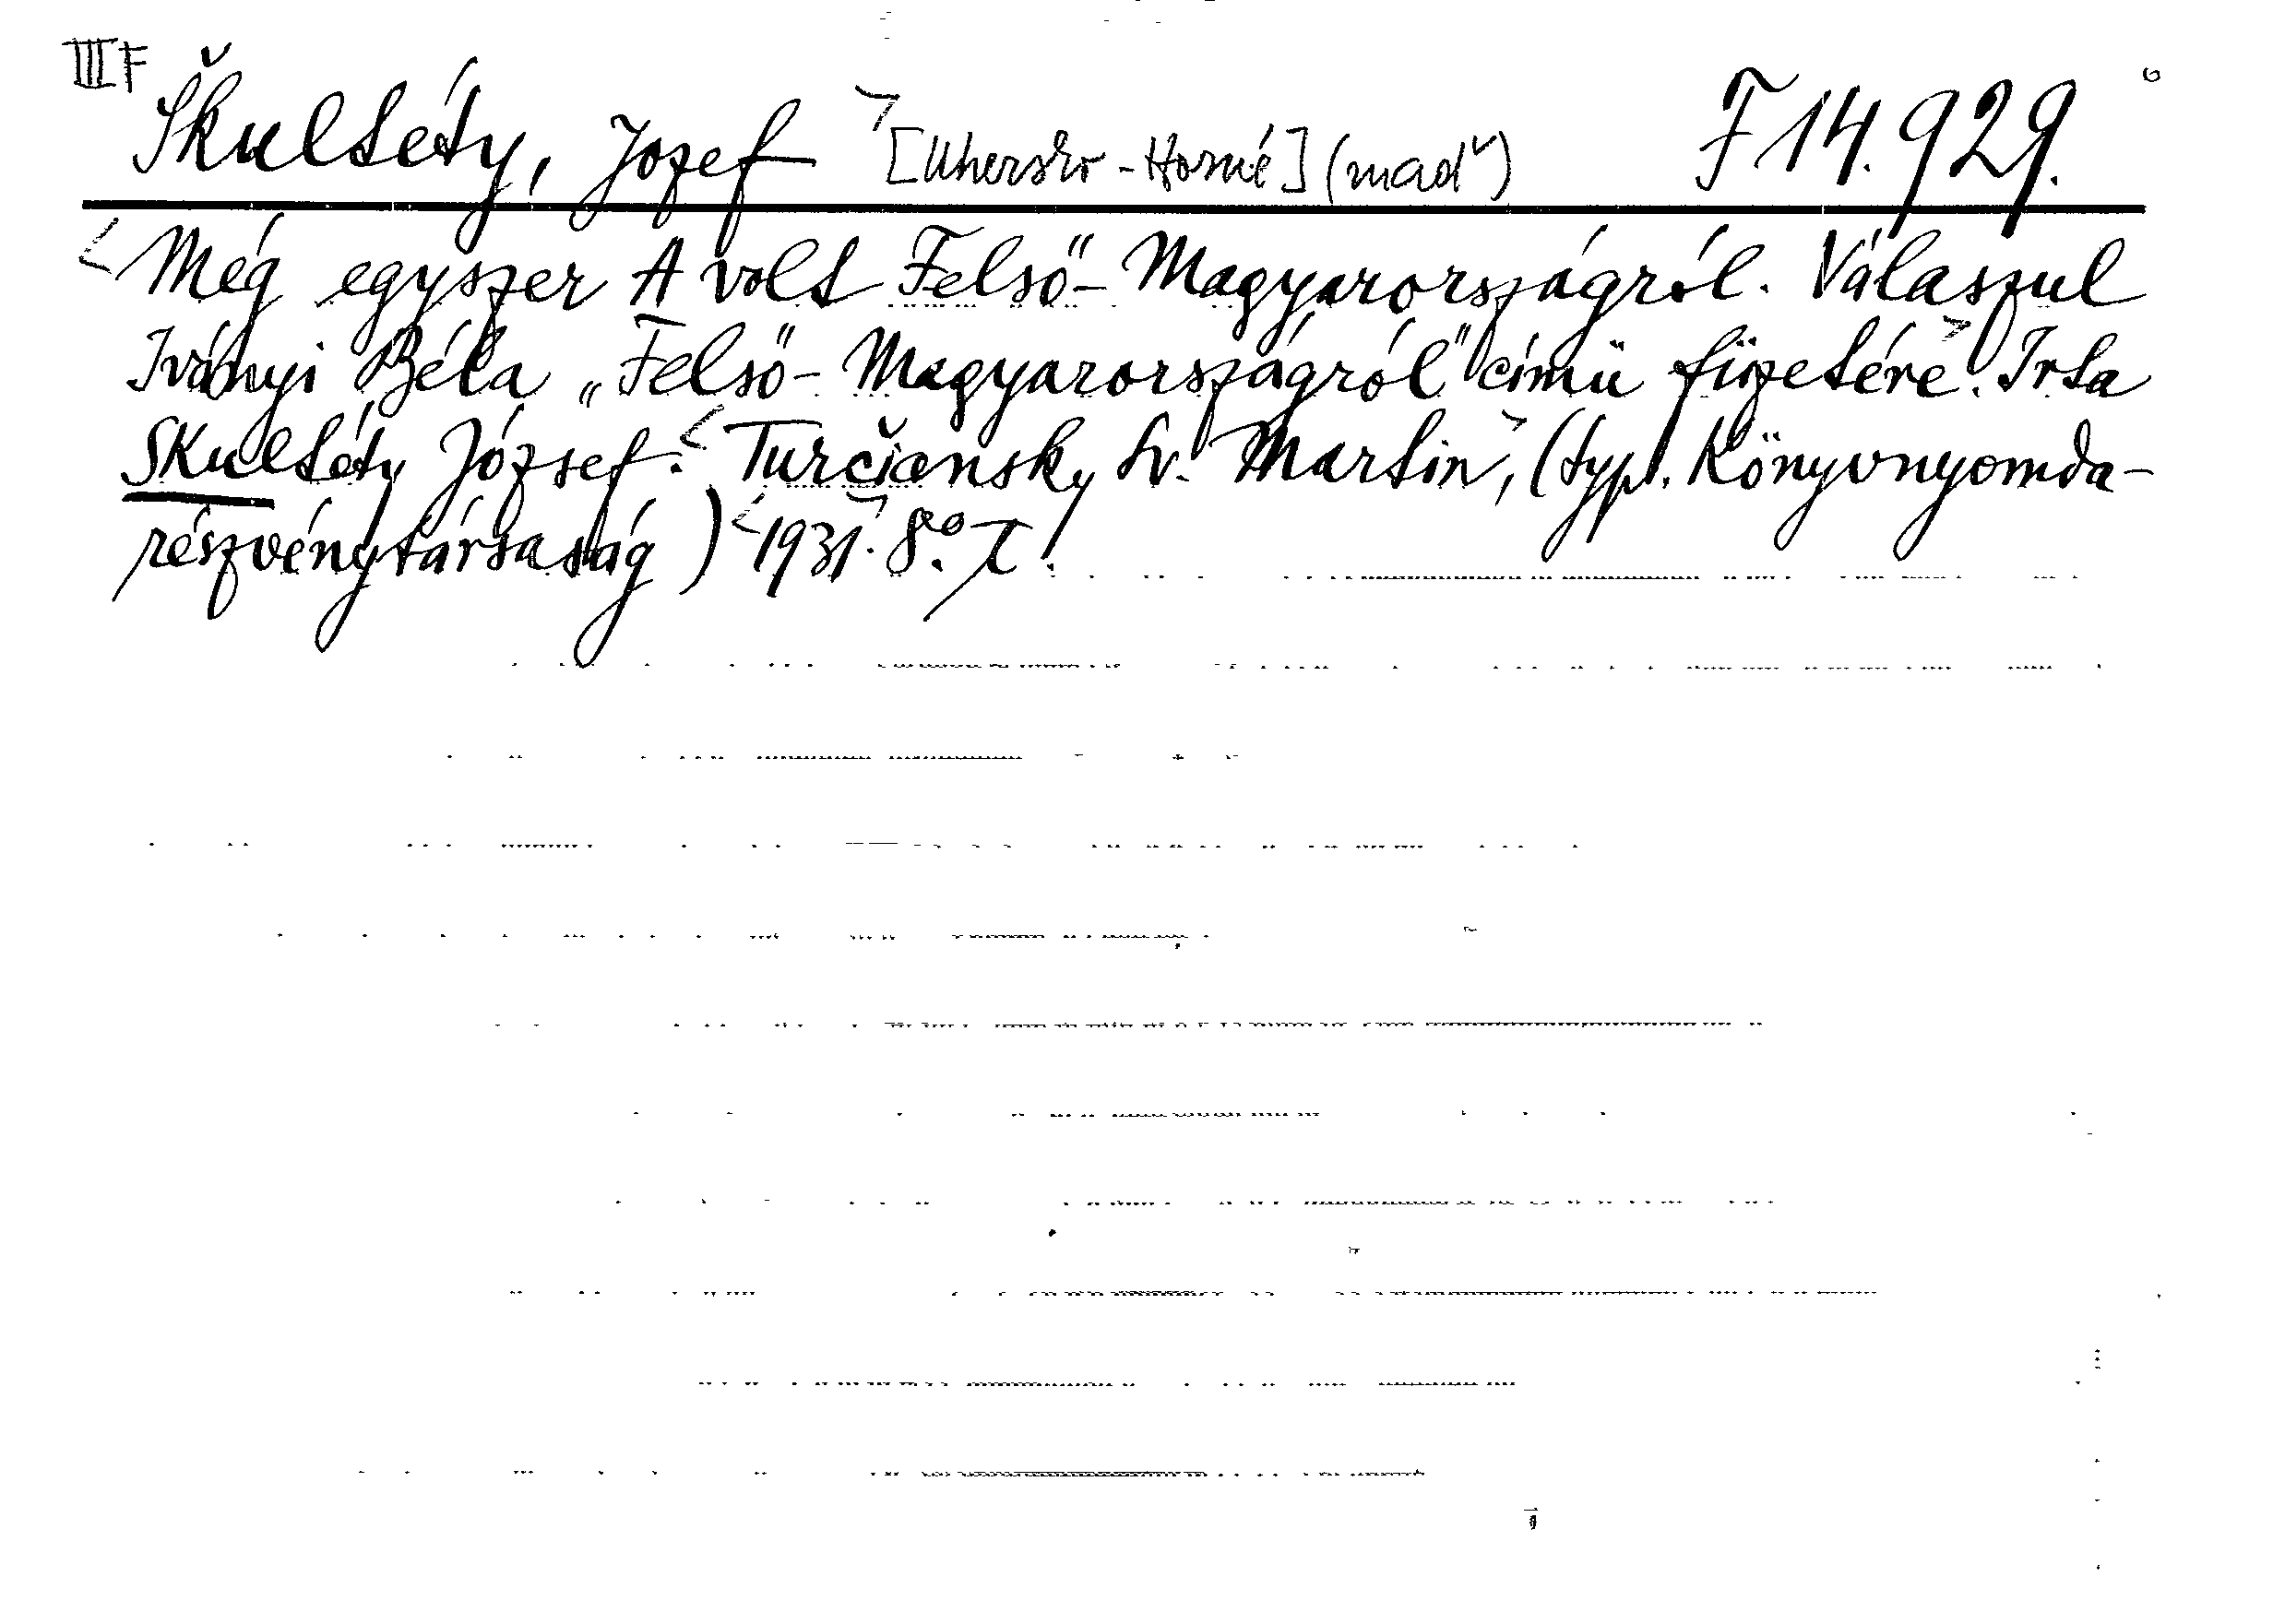 III F
Škultéty, Jozef [Uhersko-Horné] (maď) F 14.929.
Még egyszer A volt Felső-Magyarországról. Válaszul
Iványi Béla „Felső-Magyarországról" című füzetére. Irta
Skultéty József. Turčiansky Sv. Martin, (typ. Könyvnyomda-
részvénytársaság) 1931. 8°.